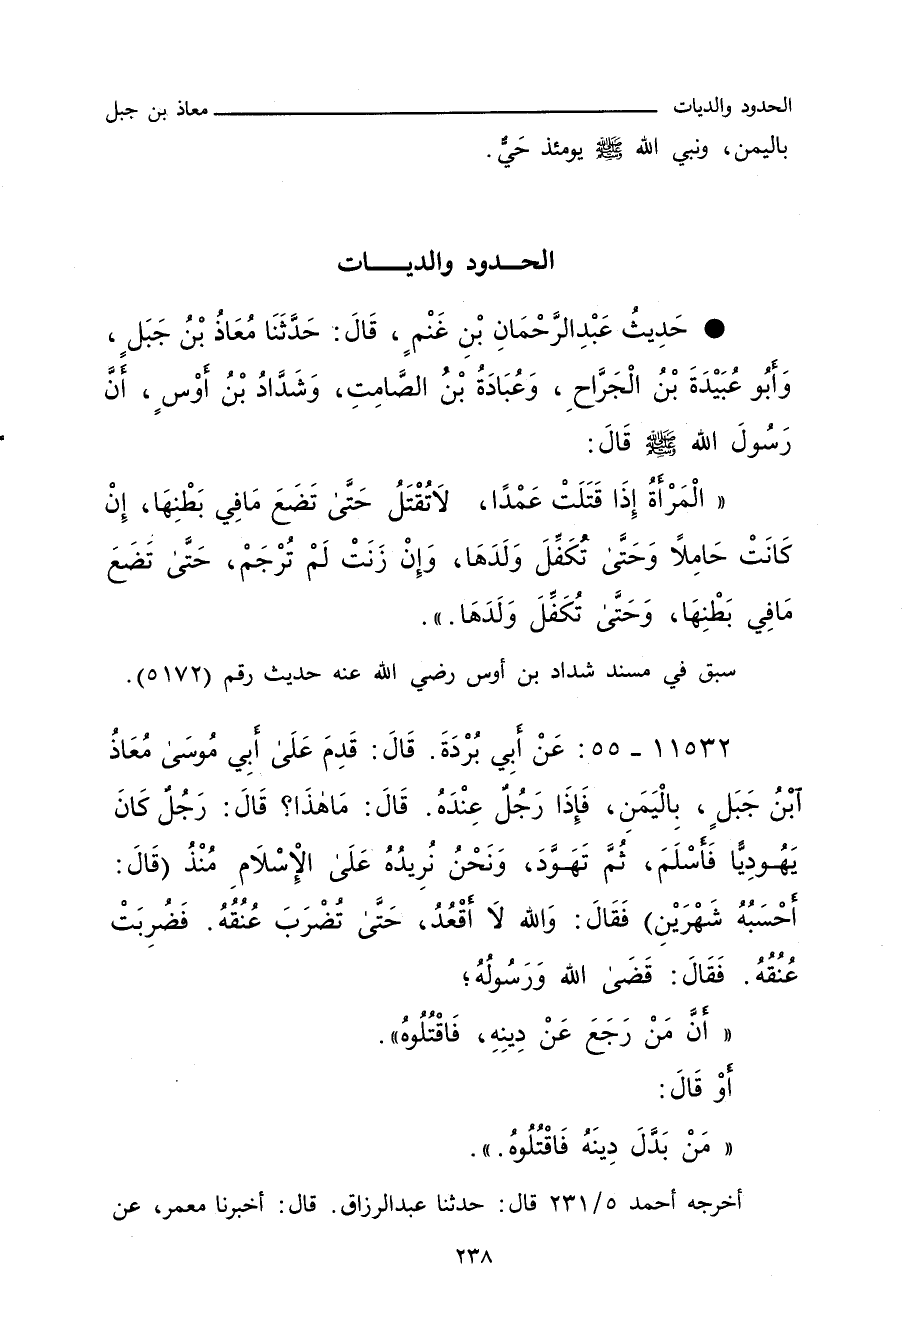 الحدود والديات ــــــــــــــــــــ معاذ بن جبل
باليمن، ونبي الله ﷺ يومئذ حَيٌّ.
الحــدود والديــات
● حَدِيثُ عَبْدِالرَّحْمَانِ بْنِ غَنْمٍ، قَالَ: حَدَّثَنَا مُعَاذُ بْنُ جَبَلٍ،
وَأَبُو عُبَيْدَةَ بْنُ الْجَرَّاحِ، وَعُبَادَةُ بْنُ الصَّامِتِ، وَشَدَّادُ بْنُ أَوْسٍ، أَنَّ
رَسُولَ الله ﷺ قَالَ:
« الْمَرْأَةُ إِذَا قَتَلَتْ عَمْدًا، لَاتُقْتَلُ حَتَّىٰ تَضَعَ مَافِي بَطْنِهَا، إِنْ
كَانَتْ حَامِلًا وَحَتَّىٰ تُكَفِّلَ وَلَدَهَا، وَإِنْ زَنَتْ لَمْ تُرْجَمْ، حَتَّىٰ تَضَعَ
مَافِي بَطْنِهَا، وَحَتَّىٰ تُكَفِّلَ وَلَدَهَا.».
سبق في مسند شداد بن أوس رضي الله عنه حديث رقم (٥١٧٢).
١١٥٣٢ ـ ٥٥: عَنْ أَبِي بُرْدَةَ. قَالَ: قَدِمَ عَلَىٰ أَبِي مُوسَىٰ مُعَاذُ
ٱبْنُ جَبَلٍ، بِالْيَمَنِ، فَإِذَا رَجُلٌ عِنْدَهُ. قَالَ: مَاهٰذَا؟ قَالَ: رَجُلٌ كَانَ
يَهُودِيًّا فَأَسْلَمَ، ثُمَّ تَهَوَّدَ، وَنَحْنُ نُرِيدُهُ عَلَىٰ الْإِسْلَامِ مُنْذُ (قَالَ:
أَحْسَبُهُ شَهْرَيْنِ) فَقَالَ: وَالله لَا أَقْعُدُ، حَتَّىٰ تُضْرَبَ عُنُقُهُ. فَضُرِبَتْ
عُنُقُهُ. فَقَالَ: قَضَىٰ الله وَرَسُولُهُ؛
« أَنَّ مَنْ رَجَعَ عَنْ دِينِهِ، فَاقْتُلُوهُ».
أَوْ قَالَ:
« مَنْ بَدَّلَ دِينَهُ فَاقْتُلُوهُ.».
أخرجه أحمد ٢٣١/٥ قال: حدثنا عبدالرزاق. قال: أخبرنا معمر، عن
٢٣٨